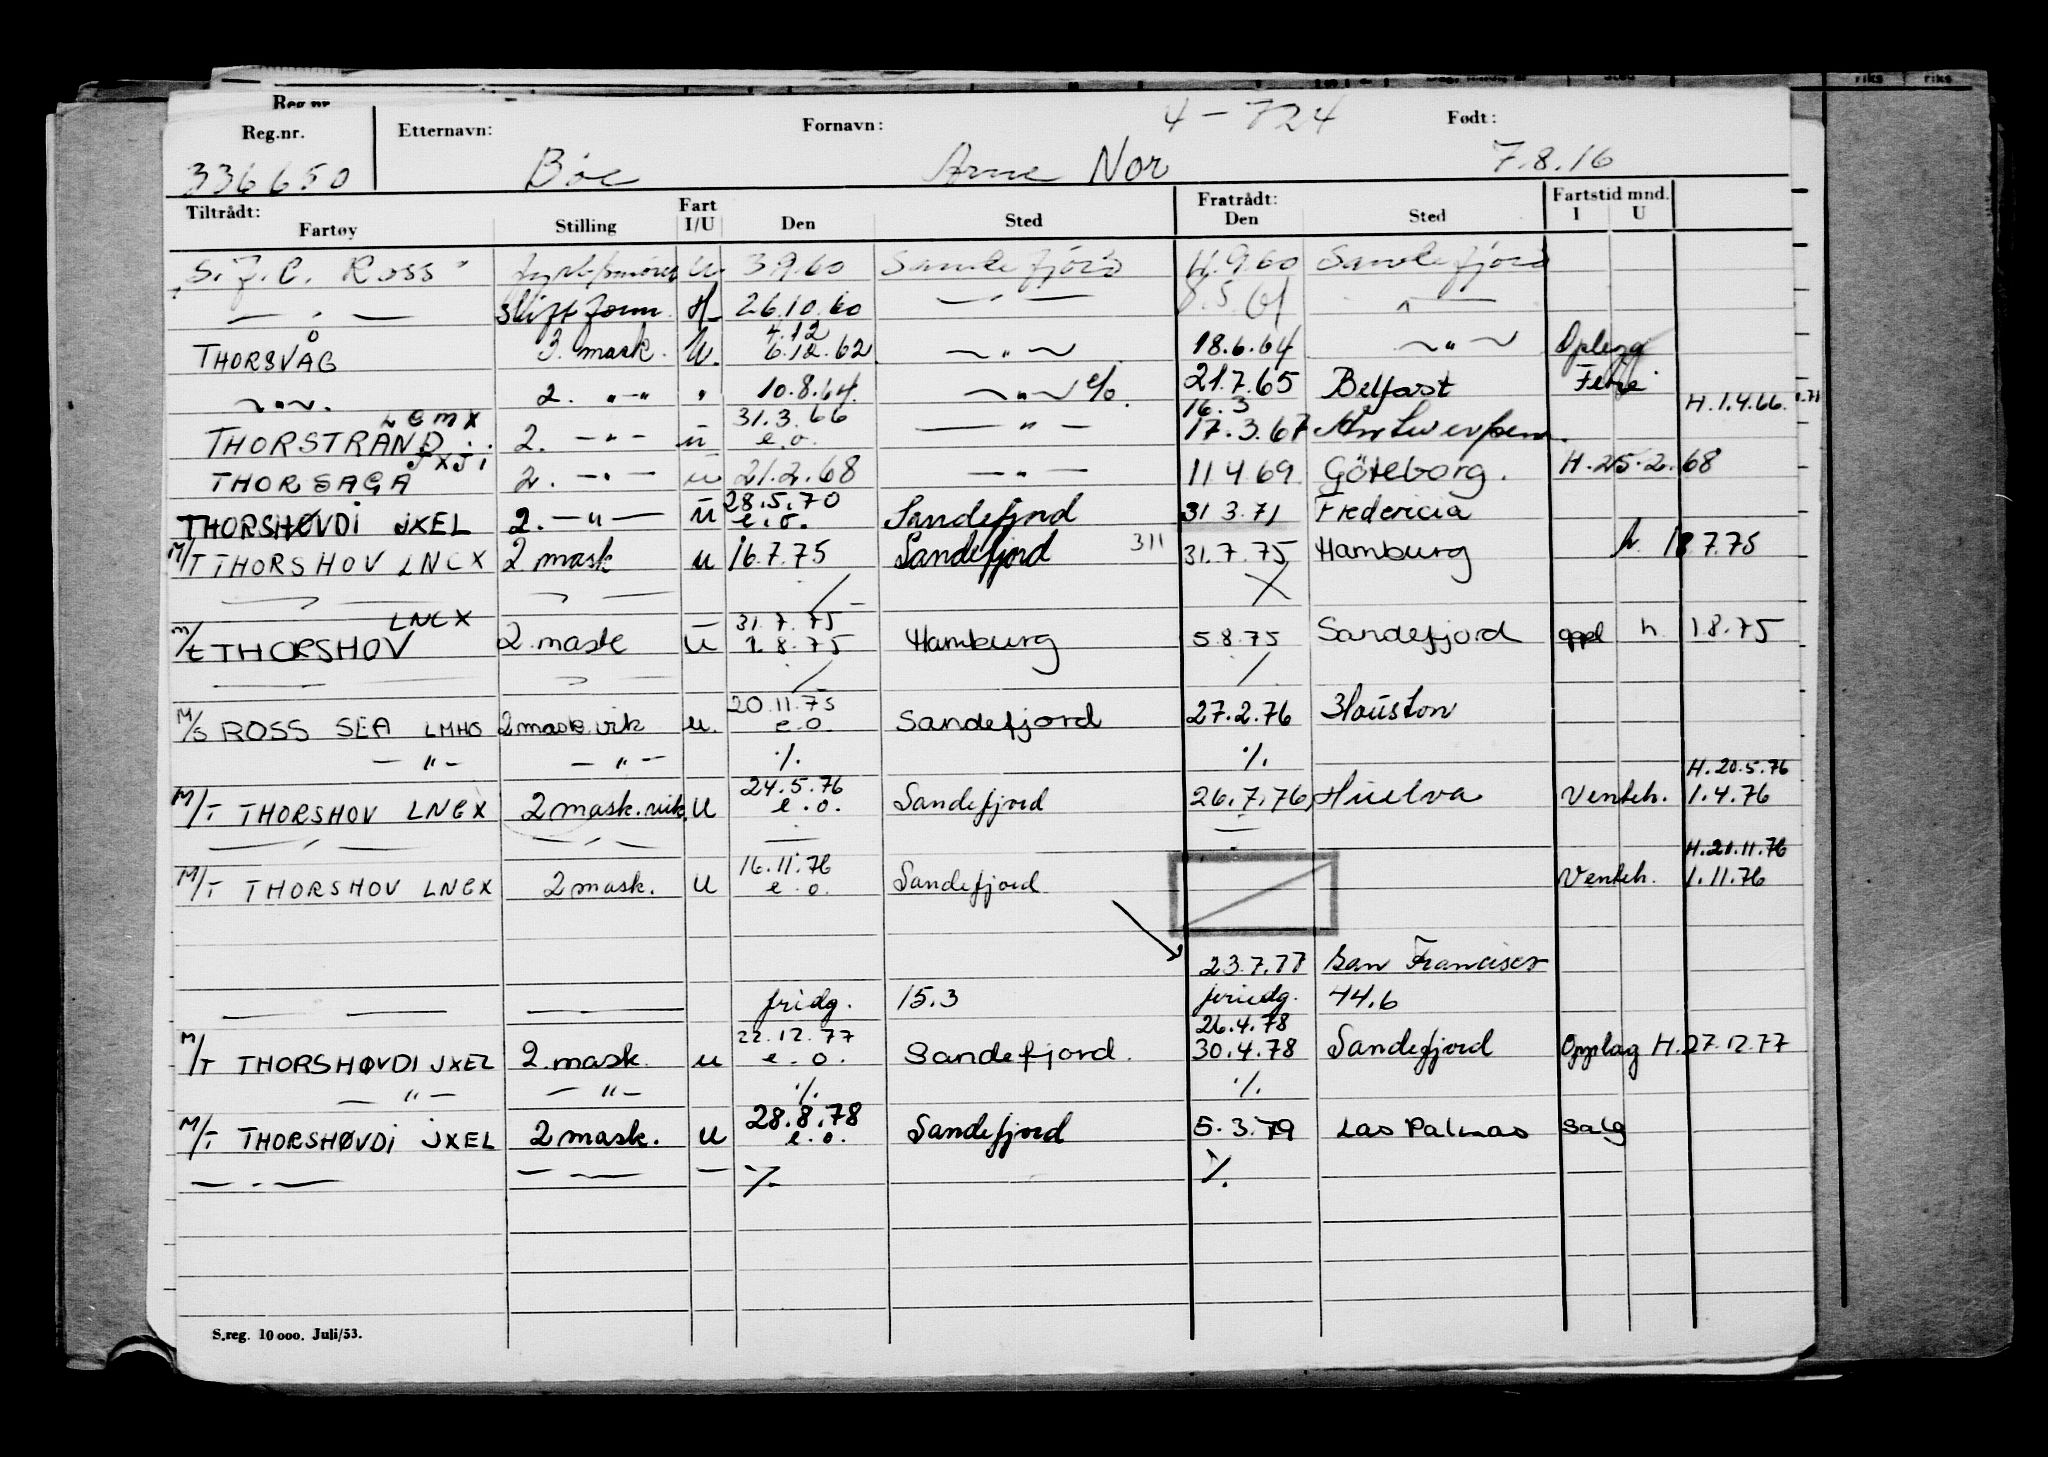 Reg.nr.
Reg.nr. Etternavn: Fornavn: 4-724 Født:
336650 Bøe Arne Nor 7.8.16
Tiltrådt: Fart Fratrådt: Fartstid mnd.
Fartøy Stilling I/U Den Sted Den Sted I U
"S.J.C. Ross" U. 3.9.60 Sandefjord 4.9.60 Sandefjord
— " — skiftform. H 26.10.60 — " — 8.5.61 — " —
4.12
THORSVÅG 3. mask. U. 6.12.62 — " — 18.6.64 — " — Oplegg
— " — 2. — " — " 10.8.64 — " — e/o. 21.7.65 Belfast Ferie
LEMX 31.3.66 16.3 H.1.4.66.
THORSTRAND 2. — " — u e.o. — " — 17.3.67 Antwerpen.
JXJI
THORSAGA 2. — " — u 21.2.68 — " — 11 4 69 Göteborg. H.25.2.68
28.5.70
THORSHØVDI JXEL 2. — " — u e.o. Sandefjord 31 3.71 Fredericia
M/T THORSHOV LNCX 2 mask u 16.7.75 Sandefjord 311 31.7.75 Hamburg h. 18 7.75
LNCX 31.7.75
m/t THORSHOV 2. mask u 1.8.75 Hamburg 5.8.75 Sandefjord oppl h. 1 8.75
20.11.75
M/S ROSS SEA LMHG 2 mask. vik u. e.o. Sandefjord 27.2.76 Houston
— " — — " — ./. ./.
24.5.76 H.20.5.76
M/T THORSHOV LNCX 2 mask. vik. u e.o. Sandefjord 26.7.76 Huelva Venteh. 1.4.76
16.11.76 H.20.11.76
M/T THORSHOV LNCX 2 mask. u e.o. Sandefjord Venteh. 1.11.76
23.7.77 San Francisco
— — — fridg. 15.3 feriedg. 44.6
22.12.77 26.4.78
M/T THORSHØVDI JXEL 2. mask. u e.o. Sandefjord. 30.4.78 Sandefjord Opplag H.27.12.77
— " — — " — ./. ./.
28.8.78
M/T THORSHØVDI JXEL 2 mask. u e.o. Sandefjord 5.3.79 Las Palmas Salg
— " — — — — ./. ./.
S.reg. 10 000. Juli/53.